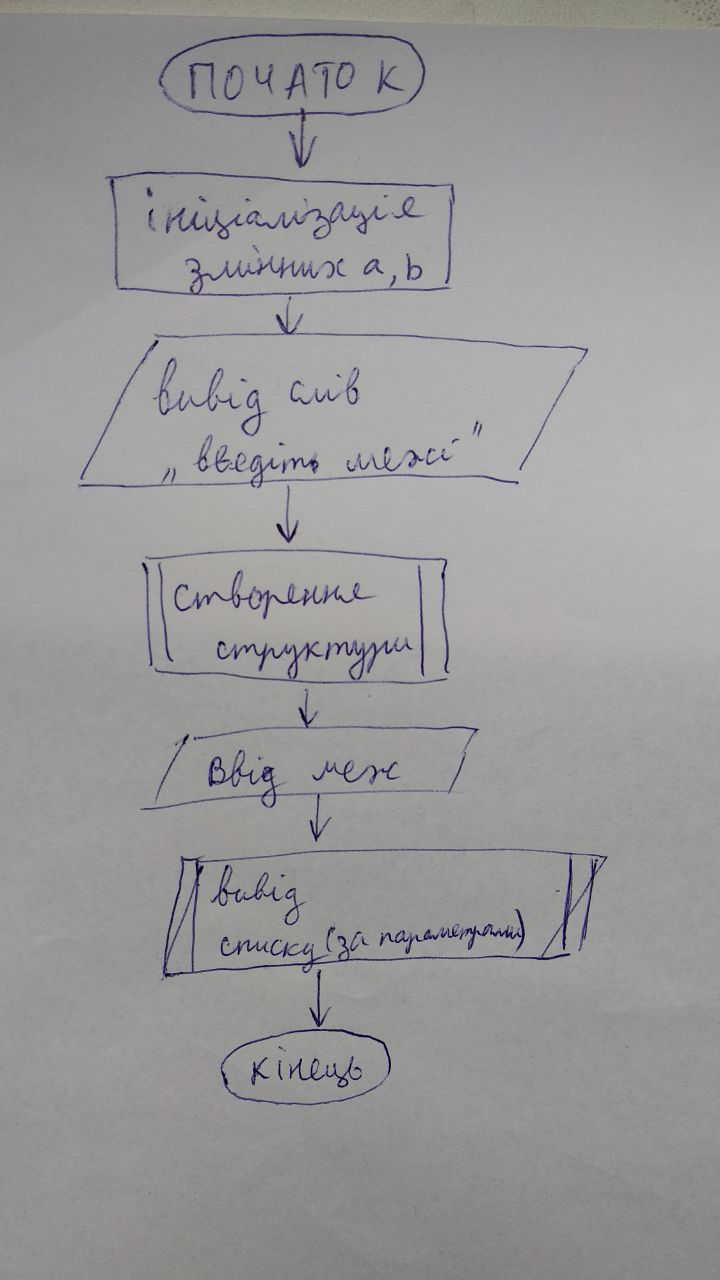 ПОЧАТОК
ініціалізація
змінних a, b
вивід слів
„введіть межі"
створення
структури
Ввід меж
вивід
списку (за параметрами)
кінець